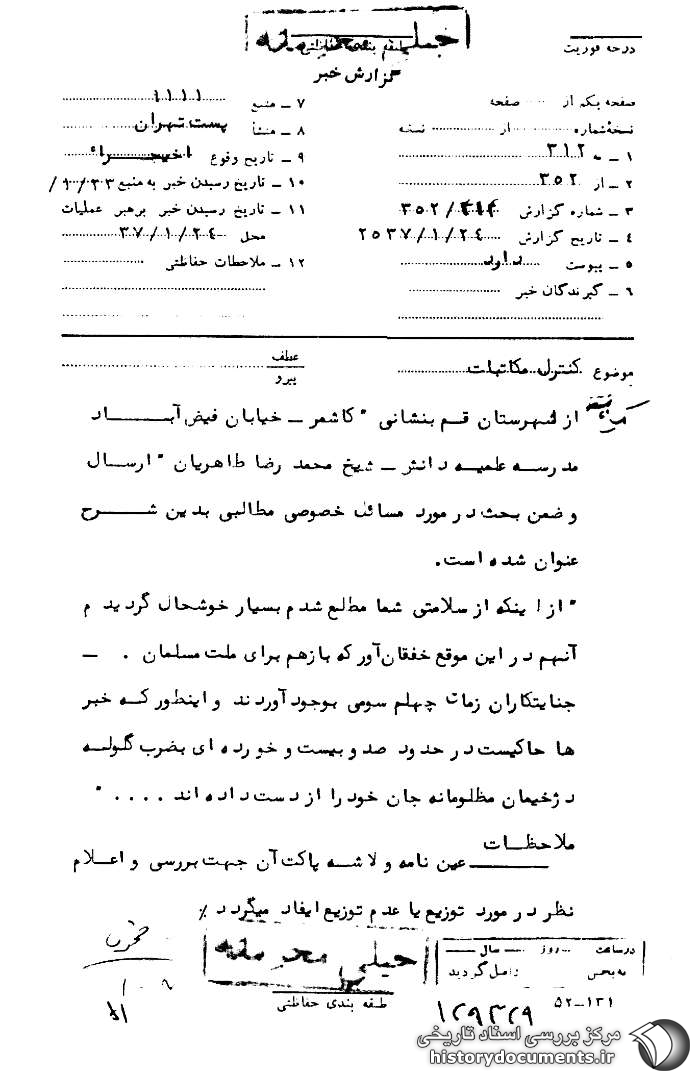 خیلی محرمانه
درجه فوریت
طبقه بندی حفاظتی
گزارش خبر
صفحه یکم از صفحه
نسخه شماره از نسخه
۱ ـ به ۳۱۲
۲ ـ از ۳۵۲
۳ ـ شماره گزارش ۳۵۲/
۴ ـ تاریخ گزارش ۲۵۳۷/۱/۲۴
۵ ـ پیوست دارد
۶ ـ گیرندگان خبر
۷ ـ منبع ۱۱۱۱
۸ ـ منشأ پست تهران
۹ ـ تاریخ وقوع اخیرا
۱۰ ـ تاریخ رسیدن خبر به منبع ۳۳/۱/
۱۱ ـ تاریخ رسیدن خبر برهبر عملیات
محل ۳۷/۱/۲۴
۱۲ ـ ملاحظات حفاظتی
موضوع کنترل مکاتبات
عطف
پیرو
از شهرستان قم بنشانی " کاشمر ـ خیابان فیض آبـــاد
مدرسه علمیه دانش ـ شیخ محمد رضا طاهریان " ارسال
و ضمن بحث در مورد مسائل خصوصی مطالبی بدین شـــرح
عنوان شده است.
" از اینکه از سلامتی شما مطلع شدم بسیار خوشحال گردیدم
آنهم در این موقع خفقان‌آور که بازهم برای ملت مسلمان . ـ
جنایتکاران زمان چهلم سومی بوجود آوردند و اینطور کـه خبر
ها حاکیست در حدود صد و بیست و خورده ای بضرب گلولـه
دژخیمان مظلومانه جان خود را از دست داده اند . . . . "
ملاحظـات
عین نامه و لاشـه پاکت آن جهت بررسی و اعـلام
نظر در مورد توزیع یا عدم توزیع ایفاد میگردد ٪
خیلی محرمانه
طبقه بندی حفاظتی
در ساعت روز سال
به بخش واصل گردید
۵۲ـ۱۳۱
۱۲۹۳۲۹
مرکز بررسی اسناد تاریخی
historydocuments.ir